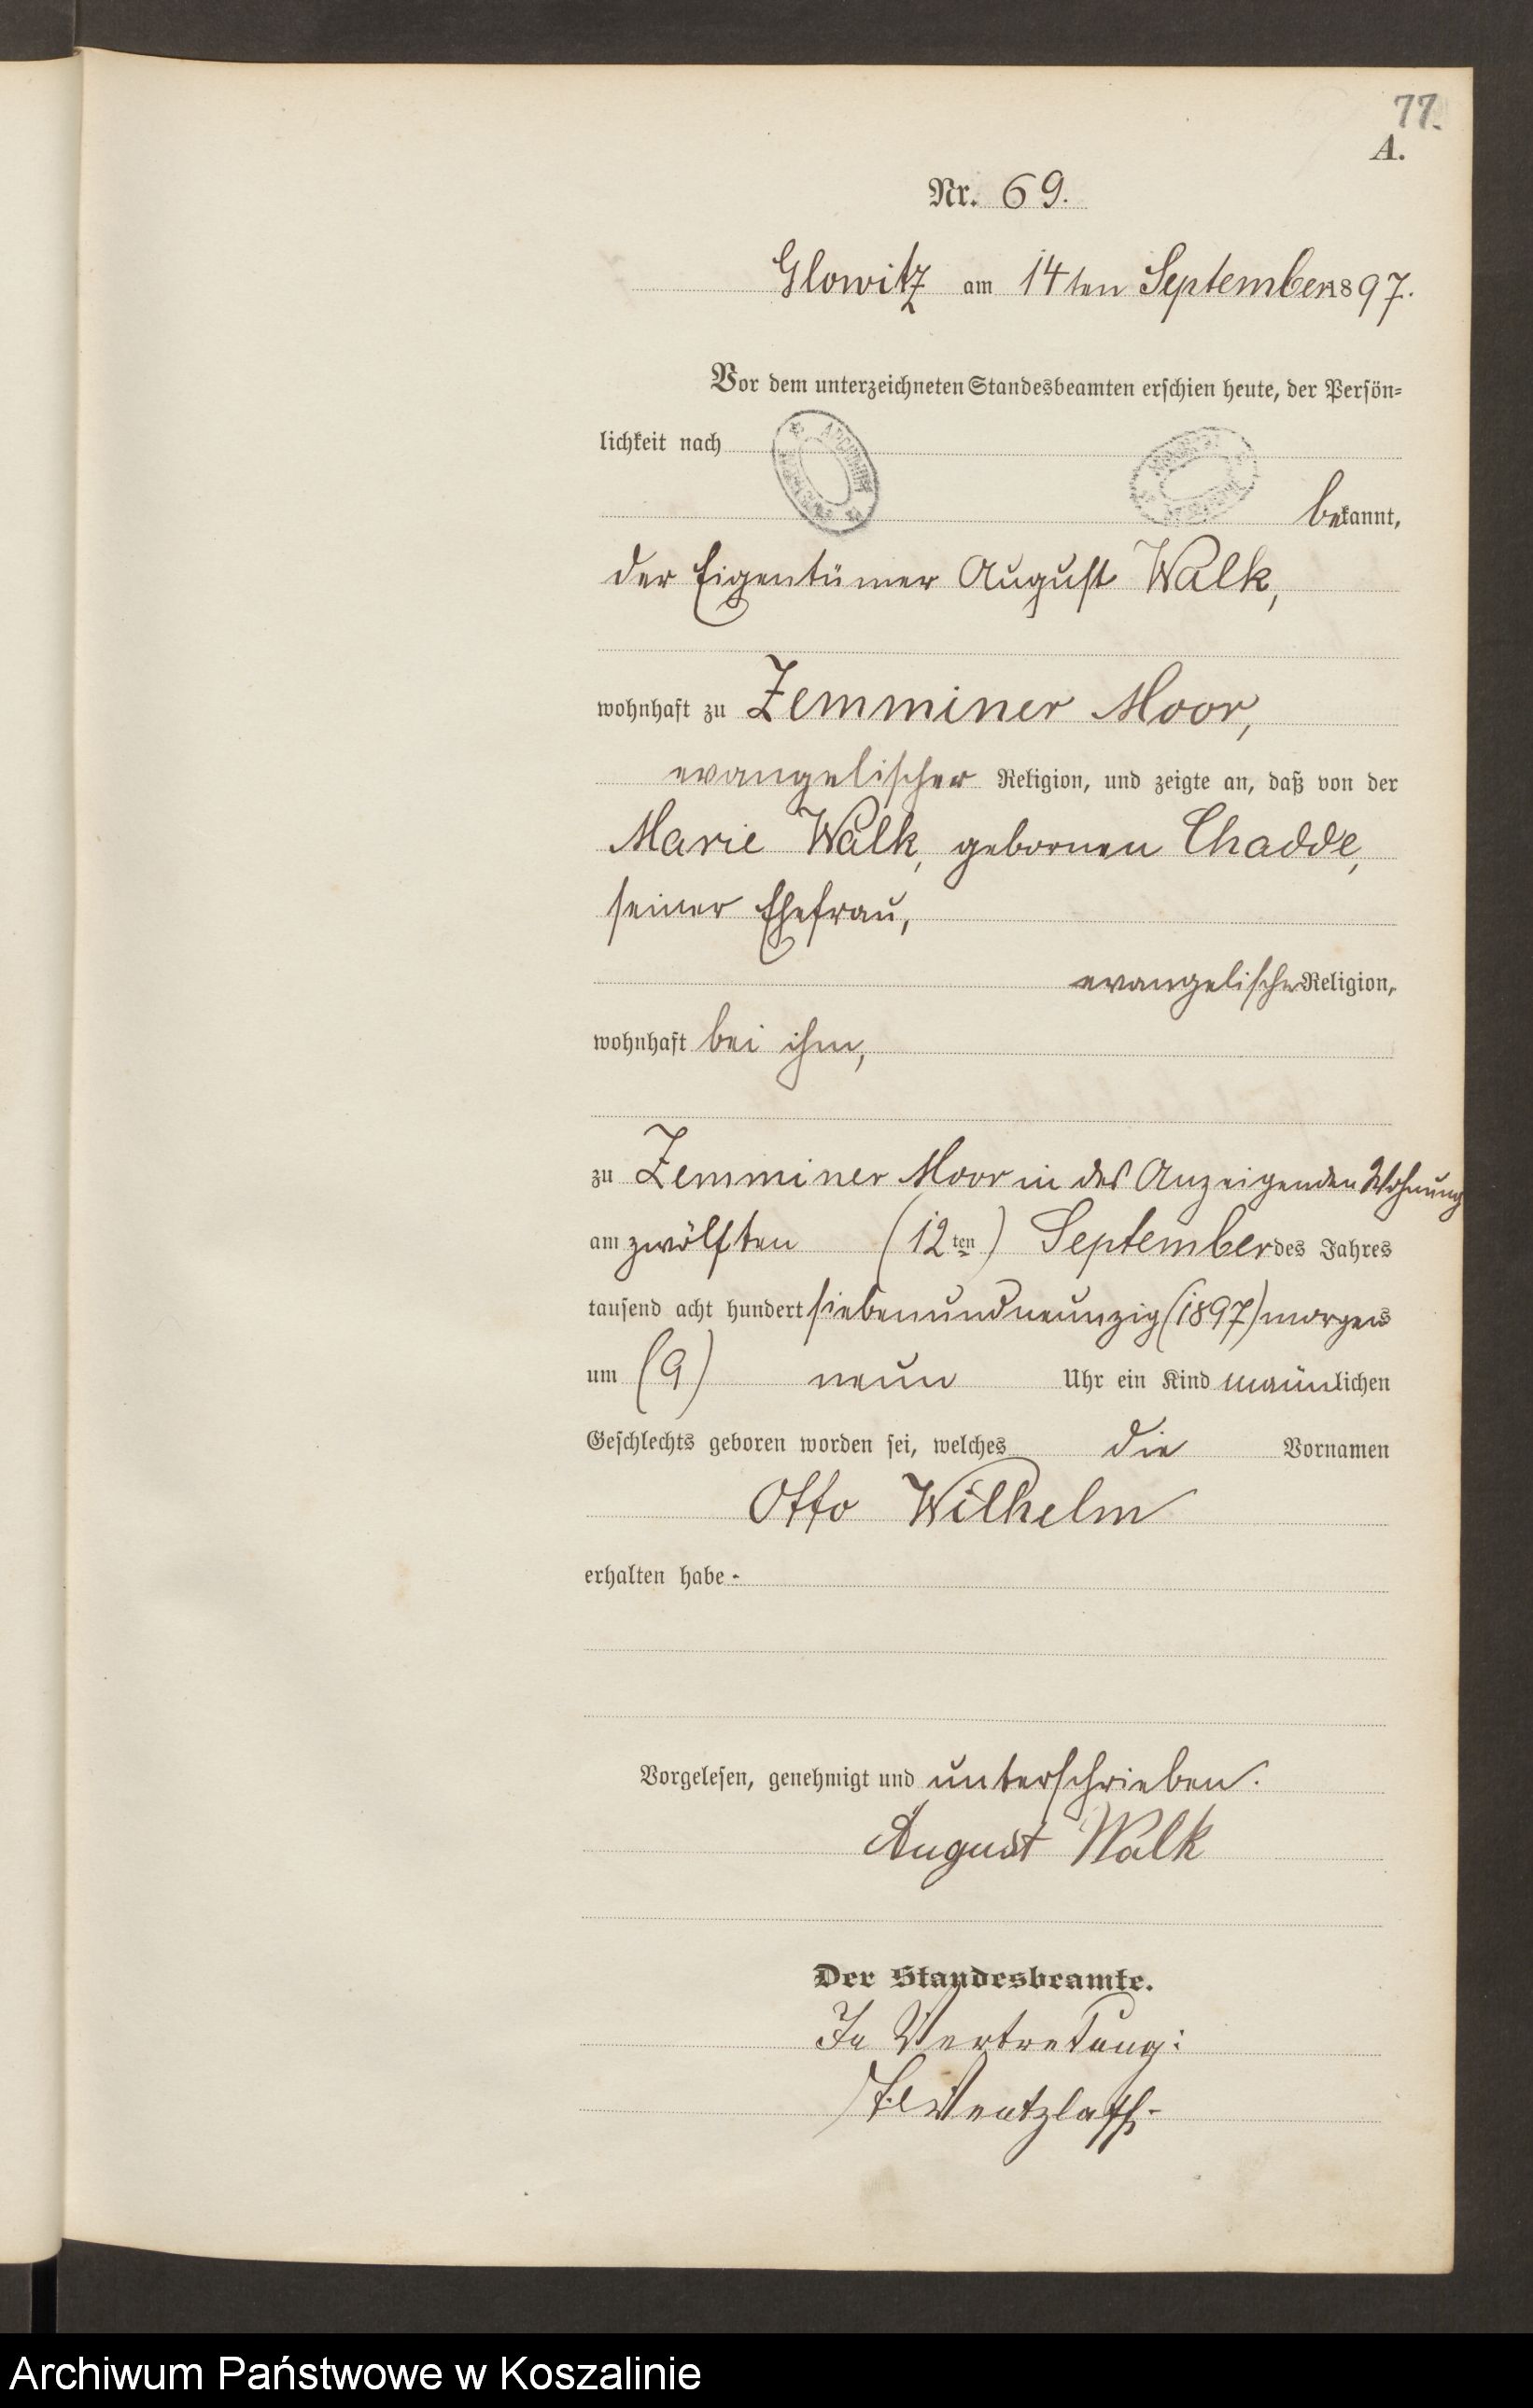 77.
A.
Nr. 69.
Glowitz am 14ten September 1897.
Vor dem unterzeichneten Standesbeamten erschien heute, der Persön-
lichkeit nach
bekannt,
der Eigentümer August Walk,
wohnhaft zu Zemminer Moor,
evangelischer Religion, und zeigte an, daß von der
Marie Walk, gebornen Chadde,
seiner Ehefrau,
evangelischer Religion,
wohnhaft bei ihm,
zu Zemminer Moor in des Anzeigenden Wohnung
am zwölften (12ten) September des Jahres
tausend acht hundert siebenundneunzig (1897) morgens
um (9) neun Uhr ein Kind männlichen
Geschlechts geboren worden sei, welches die Vornamen
Otto Wilhelm
erhalten habe -
Vorgelesen, genehmigt und unterschrieben.
August Walk
Der Standesbeamte.
In Vertretung:
Wentzlaff.
Archiwum Państwowe w Koszalinie